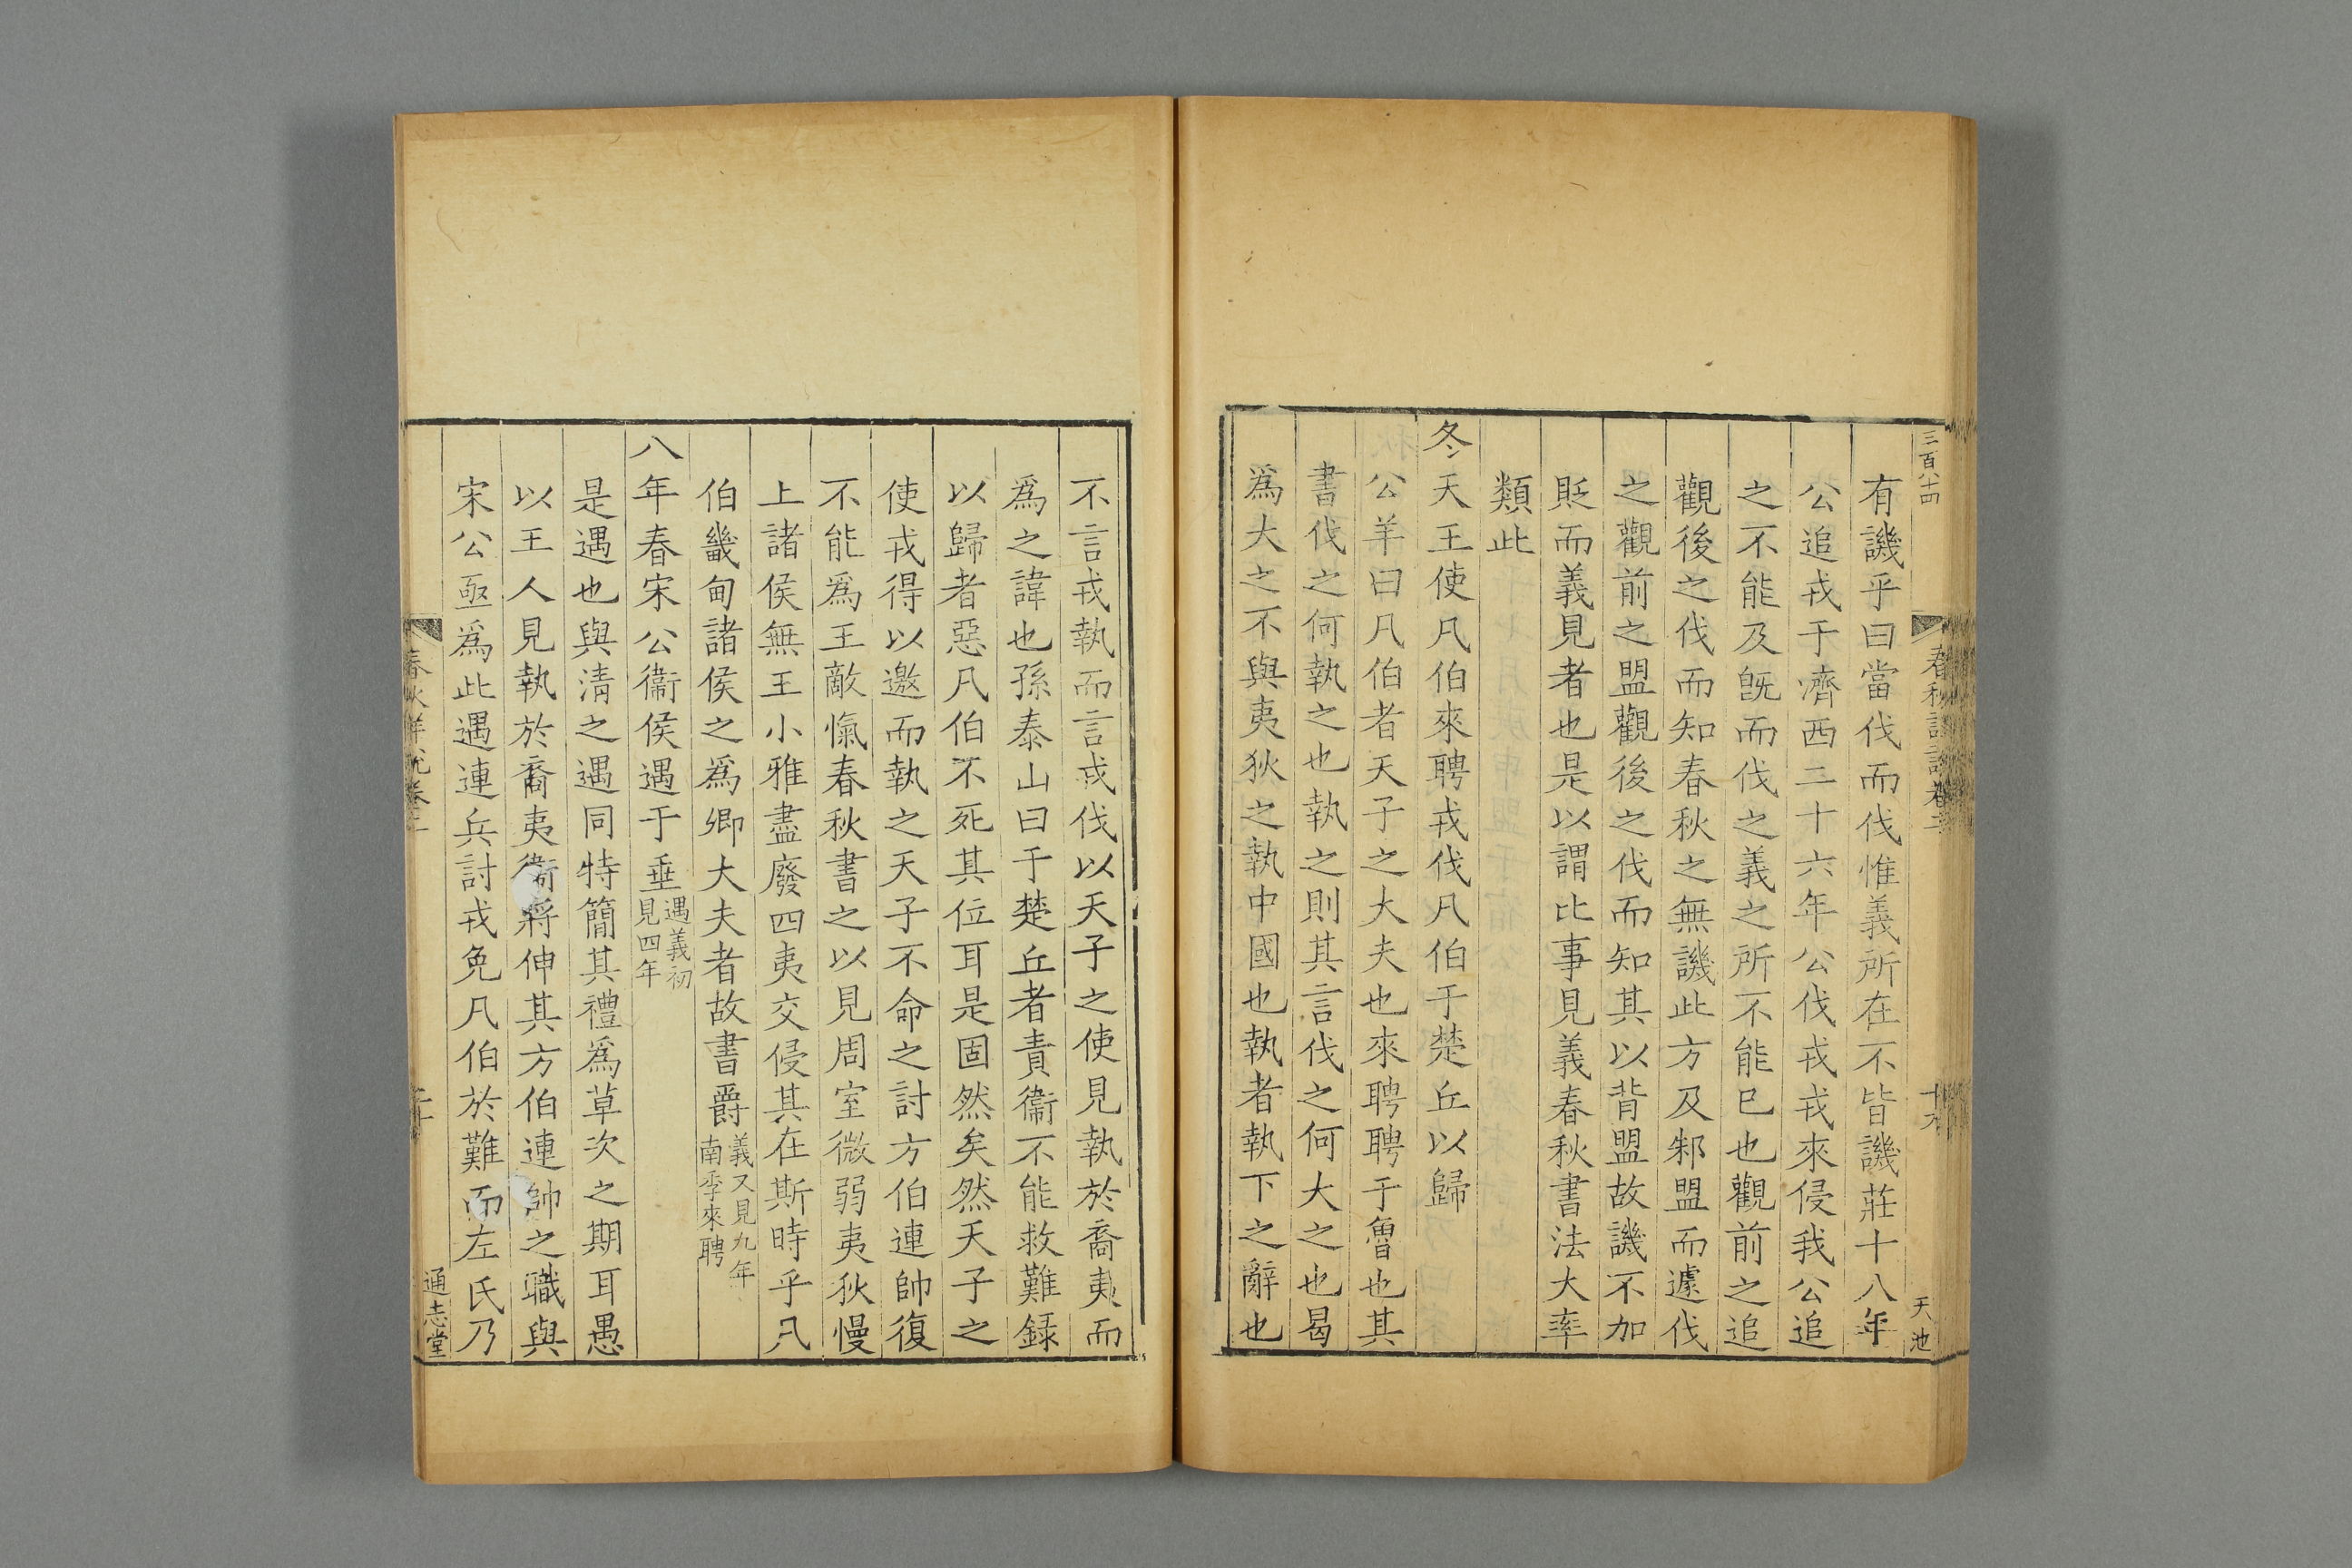 三百八十四
有譏乎曰當伐而伐惟義所在不皆譏莊十八年
公追戎于濟西二十六年公伐戎戎來侵我公追
之不能及旣而伐之義之所不能已也觀前之追
觀後之伐而知春秋之無譏此方及邾盟而遽伐
之觀前之盟觀後之伐而知其以背盟故譏不加
貶而義見者也是以謂比事見義春秋書法大率
類此
冬天王使凡伯來聘戎伐凡伯于楚丘以歸
公羊曰凡伯者天子之大夫也來聘聘于魯也其
書伐之何執之也執之則其言伐之何大之也曷
爲大之不與夷狄之執中國也執者執下之辭也
春秋詳說卷二
十九
天池
不言戎執而言戎伐以天子之使見執於裔夷而
爲之諱也孫泰山曰于楚丘者責衞不能救難録
以歸者惡凡伯不死其位耳是固然矣然天子之
使戎得以邀而執之天子不命之討方伯連帥復
不能爲王敵愾春秋書之以見周室微弱夷狄慢
上諸侯無王小雅盡廢四夷交侵其在斯時乎凡
伯畿甸諸侯之爲卿大夫者故書爵義又見九年南季來聘
八年春宋公衞侯遇于垂遇義初見四年
是遇也與清之遇同特簡其禮爲草次之期耳愚
以王人見執於裔夷衞將伸其方伯連帥之職與
宋公亟爲此遇連兵討戎免凡伯於難而左氏乃
春秋詳說卷二
二十
通志堂